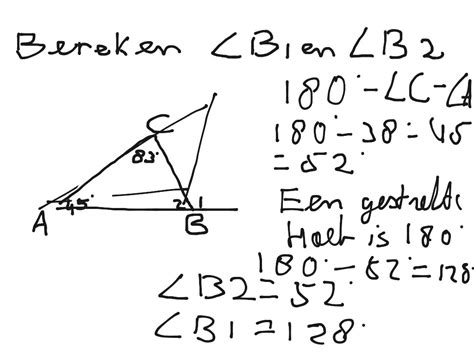 Bereken ∠B1 en ∠B2
180° - ∠C - ∠A
180° - 38° = 45
= 52°
C
83°
A
45°
2
1
B
Een gestrekte
Hoek is 180°
180° - 52° = 128°
∠B2 = 52°
∠B1 = 128°